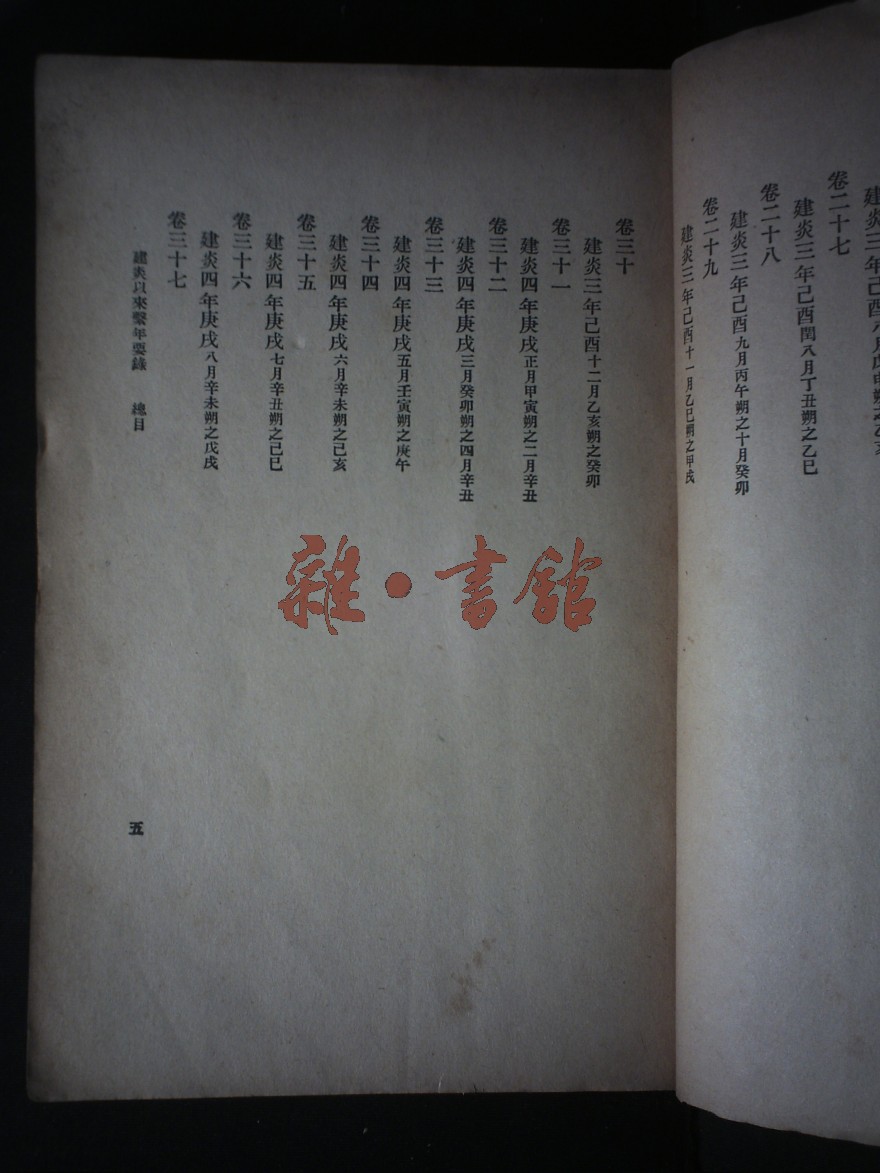 卷二十七
建炎三年己酉閏八月丁丑朔之乙巳
卷二十八
建炎三年己酉九月丙午朔之十月癸卯
卷二十九
建炎三年己酉十一月乙巳朔之甲戌
卷三十
建炎三年己酉十二月乙亥朔之癸卯
卷三十一
建炎四年庚戌正月甲寅朔之二月辛丑
卷三十二
建炎四年庚戌三月癸卯朔之四月辛丑
卷三十三
建炎四年庚戌五月壬寅朔之庚午
卷三十四
建炎四年庚戌六月辛未朔之己亥
卷三十五
建炎四年庚戌七月辛丑朔之己巳
卷三十六
建炎四年庚戌八月辛未朔之戊戌
卷三十七
建炎以來繫年要錄 總目
五
雜·書館